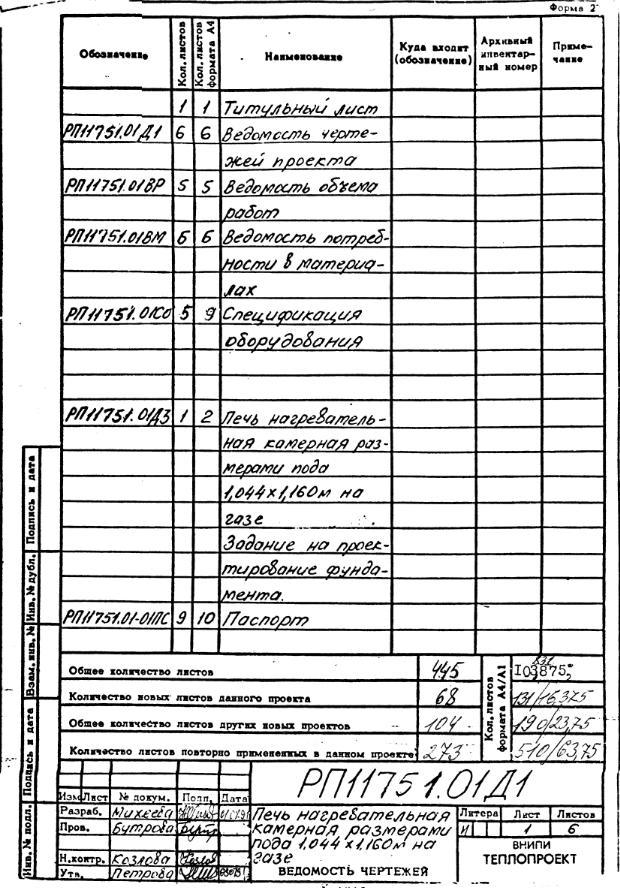 Форма 2
Обозначение Кол. листов Кол. листов формата А4 Наименование Куда входит (обозначение) Архивный инвентарный номер Примечание
1 1 Титульный лист
РП11751.01Д1 6 6 Ведомость черте-
жей проекта
РП11751.01ВР 5 5 Ведомость объема
работ
РП11751.01ВМ 6 6 Ведомость потреб-
ности в материа-
лах
РП11751.01СО 5 9 Спецификация
оборудования
РП11751.01Д3 1 2 Печь нагреватель-
ная камерная раз-
мерами пода
1,044x1,160м на
газе
Задание на проек-
тирование фунда-
мента.
РП11751.01-01ПС 9 10 Паспорт
Общее количество листов 445
Количество новых листов данного проекта 68
Общее количество листов других новых проектов 104
Количество листов повторно примененных в данном проекте 273
Кол. листов формата А4/А1
831
103875
131/16,375
190/23,75
510/63,75
РП11751.01Д1
Изм Лист № докум. Подп. Дата
Разраб. Михеева
Пров. Бутрова
Н.контр. Козлова
Утв. Петрова
Печь нагревательная
камерная размерами
пода 1,044 x1,160м на
газе
ВЕДОМОСТЬ ЧЕРТЕЖЕЙ
Литера Лист Листов
И 1 6
ВНИПИ
ТЕПЛОПРОЕКТ
Инв. № подл. Подпись и дата Взам. инв. № Инв. № дубл. Подпись и дата